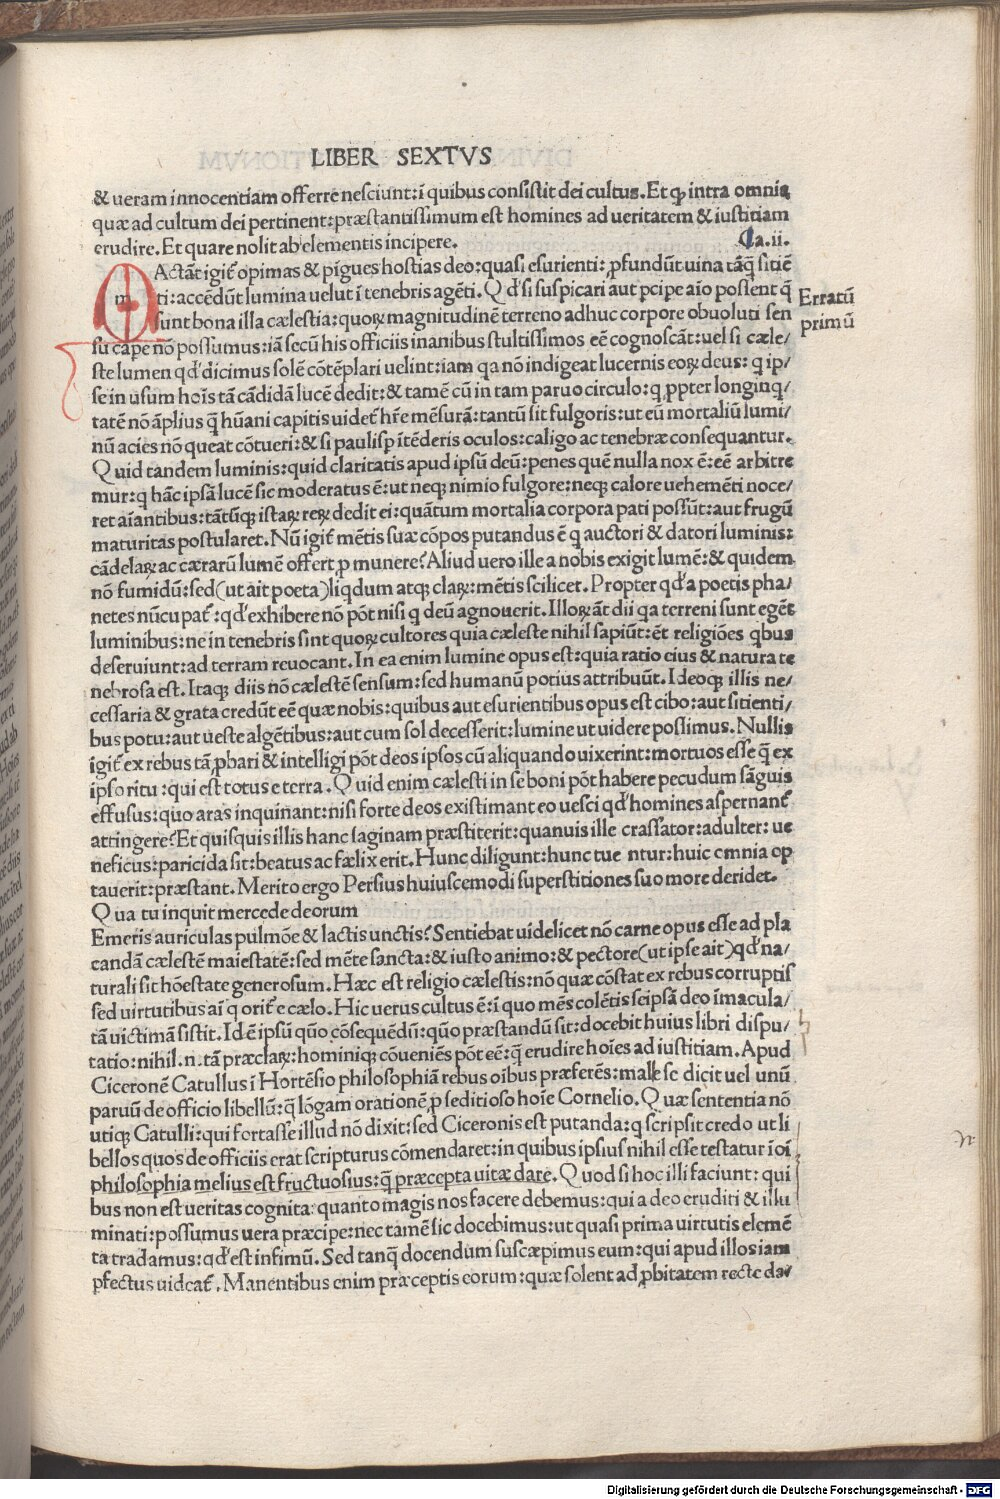 LIBER SEXTVS
& ueram innocentiam offerre nesciunt:ī quibus consistit dei cultus.Et ꝙ intra omnia
quæ ad cultum dei pertinent:præstantissimum est homines ad ueritatem & iustitiam
erudire.Et quare nolit ab elementis incipere. Ca.ii.
mActāt igiť opimas & pīgues hostias deo:quasi esurienti:ꝓfundūt uina tāq̄ sitiē
ti:accēdūt lumina uelut ī tenebris agēti.Qď si suspicari aut ꝑcipe aīo possent q̄
sunt bona illa cælestia:quoꝝ magnitudinē terreno adhuc corpore obuoluti sen
su cape nō possumus:iā secū his officiis inanibus stultissimos eē cognoscāt:uel si cæle/
ste lumen qď dicimus solē cōtēplari uelint:iam qa nō indigeat lucernis eoꝝ deus: q ip/
se in usum hoīs tā cādidā lucē dedit:& tamē cū in tam paruo circulo:q ꝓpter longinq/
tatē nō āplius q̄ hūani capitis uideť hr̄e mēsurā:tantū sit fulgoris:ut eū mortaliū lumi/
nū acies nō queat cōtueri:& si paulisꝑ ītēderis oculos:caligo ac tenebræ consequantur.
Quid tandem luminis:quid claritatis apud ipsū deū:penes quē nulla nox ē:eē arbitre
mur:q hāc ipsā lucē sic moderatus ē:ut neqꝫ nimio fulgore:neqꝫ calore uehemēti noce/
ret aīantibus:tātūqꝫ istaꝝ reꝝ dedit ei:quātum mortalia corpora pati possūt:aut frugū
maturitas postularet.Nū igiť mētis suæ cōpos putandus ē q auctori & datori luminis:
cādelaꝝ ac cæraru lumē offert ꝓ munere?Aliud uero ille a nobis exigit lumē:& quidem
nō fumidū:sed(ut ait poeta)liqdum atqꝫ claꝝ:mētis scilicet.Propter qď a poetis pha/
netes nūcupať:qď exhibere nō pōt nisi q deū agnouerit.Illoꝝ āt dii qa terreni sunt egēt
luminibus:ne in tenebris sint quoꝝ cultores quia cæleste nihil sapiūt:ēt religiōes qbus
deseruiunt:ad terram reuocant.In ea enim lumine opus est:quia ratio eius & natura te
nebrosa est.Itaqꝫ diis nō cælestē sensum:sed humanū potius attribuūt.Ideoqꝫ illis ne/
cessaria & grata credūt eē quæ nobis:quibus aut esurientibus opus est cibo:aut sitienti/
bus potu:aut ueste algētibus:aut cum sol decesserit:lumine ut uidere possimus.Nullis
igiť ex rebus tā ꝓbari & intelligi pōt deos ipsos cū aliquando uixerint:mortuos esse q̄ ex
ipso ritu:qui est totus e terra.Quid enim cælesti in se boni pōt habere pecudum sāguis
effusus:quo aras inquinant:nisi forte deos existimant eo uesci qď homines aspernanť
attingere?Et quisquis illis hanc saginam præstiterit:quanuis ille crassator:adulter:ue
neficus:paricida sit:beatus ac fælix erit.Hunc diligunt:hunc tuentur:huic omnia op
tauerit:præstant.Merito ergo Persius huiuscemodi superstitiones suo more deridet.
Qua tu inquit mercede deorum
Emeris auriculas pulmōe & lactis unctis?Sentiebat uidelicet nō carne opus esse ad pla
candā cælestē maiestatē:sed mēte sancta:& iusto animo:& pectore(ut ipse ait)qď na/
turali sit hōestate generosum.Hæc est religio cælestis:nō quæ cōstat ex rebus corruptis
sed uirtutibus aī q oriť e cælo.Hic uerus cultus ē:ī quo mēs colētis seipsā deo īmacula/
tā uictimā sistit.Id ē ipsū quō cōsequēdū:quō præstandū sit:docebit huius libri dispu/
tatio:nihil.n.tā præclaꝝ:hominiqꝫ cōueniēs pōt eē:q̄ erudire hoīes ad iustitiam.Apud
Ciceronē Catullus ī Hortēsio philosophiā rebus oībus præferēs:malle se dicit uel unū
paruū de officio libellū:q̄ lōgam orationē ꝓ seditioso hoīe Cornelio.Quæ sententia nō
utiqꝫ Catulli:qui fortasse illud nō dixit:sed Ciceronis est putanda:q scripsit credo ut li
bellos quos de officiis erat scripturus cōmendaret:in quibus ipsius nihil esse testatur ī oī
philosophia melius est fructuosius:q̄ præcepta uitæ dare.Quod si hoc illi faciunt:qui
bus non est ueritas cognita:quanto magis nos facere debemus:qui a deo eruditi & illu
minati:possumus uera præcipe:nec tamē sic docebimus:ut quasi prima uirtutis elemē
ta tradamus:qď est infimū.Sed tanq̄ docendum suscæpimus eum:qui apud illos iam
ꝑfectus uideať.Manentibus enim præceptis eorum:quæ solent ad ꝓbitatem recte da/
Erratū
primū
Digitalisierung gefördert durch die Deutsche Forschungsgemeinschaft - DFG